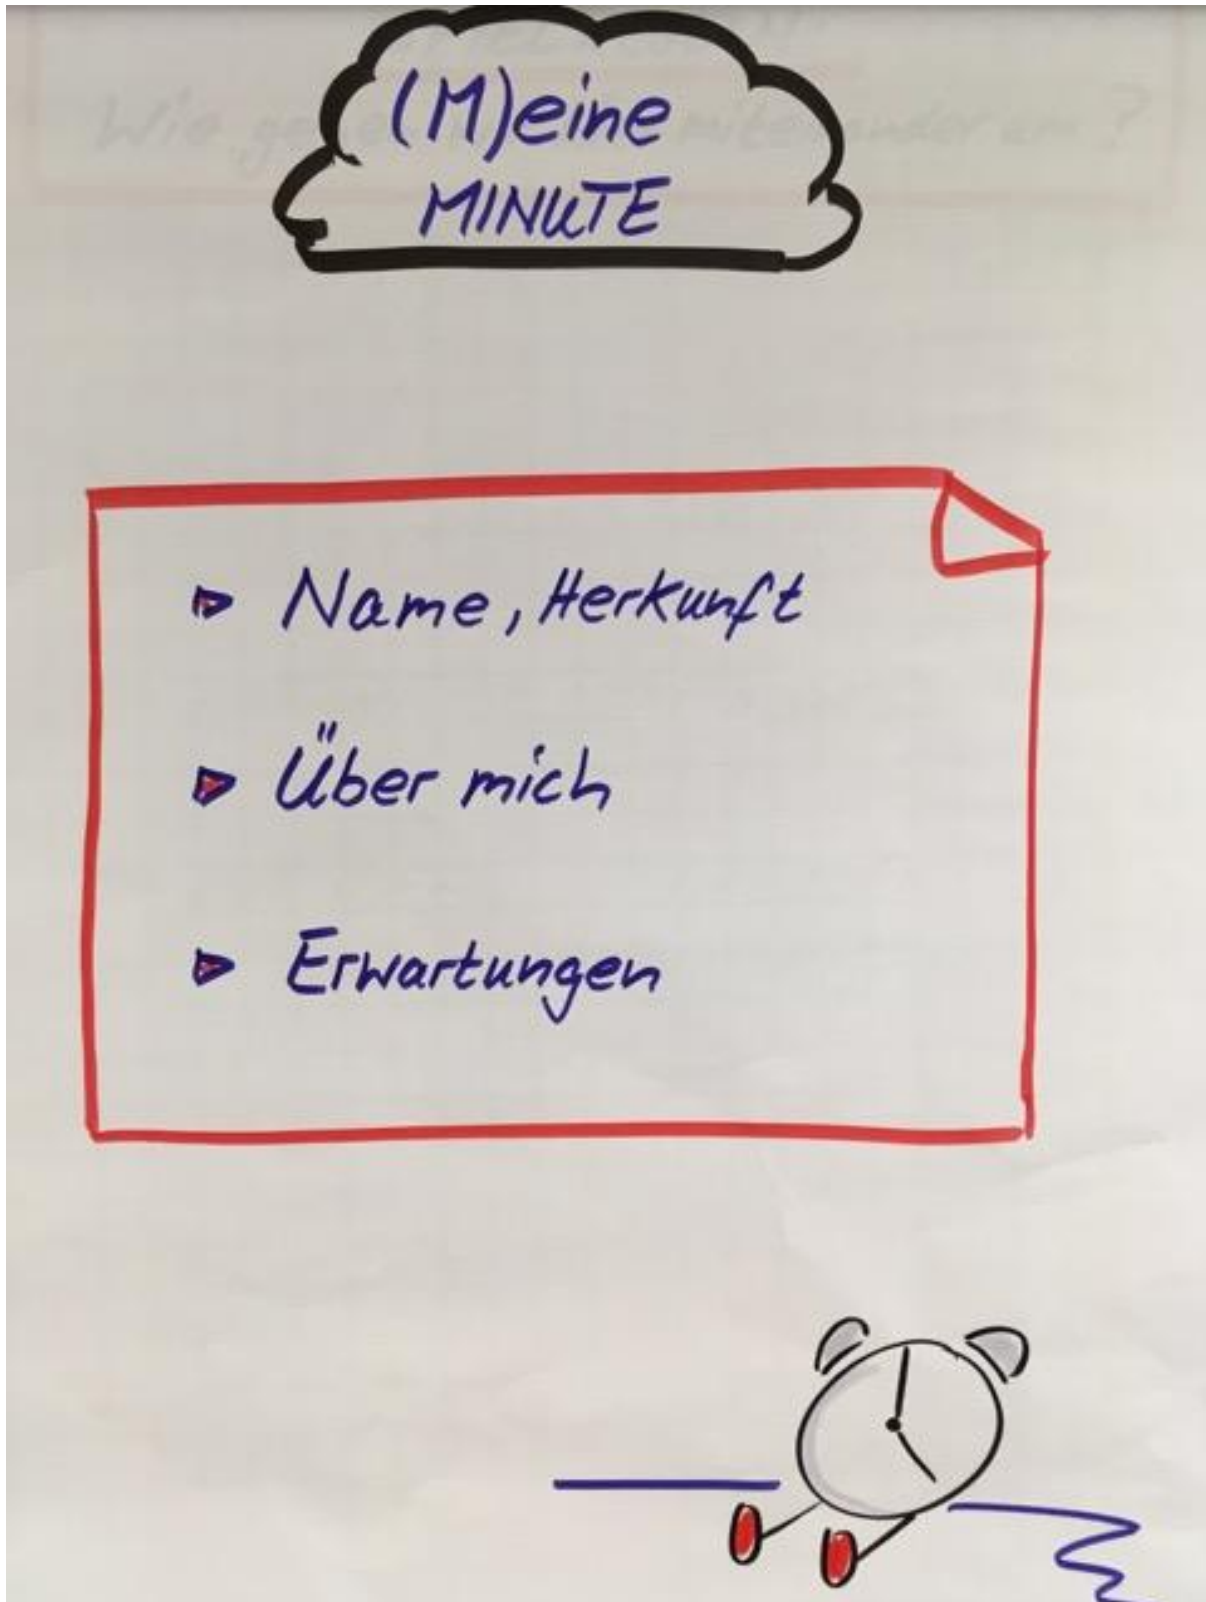 (M)eine
MINUTE
Name, Herkunft
Über mich
Erwartungen